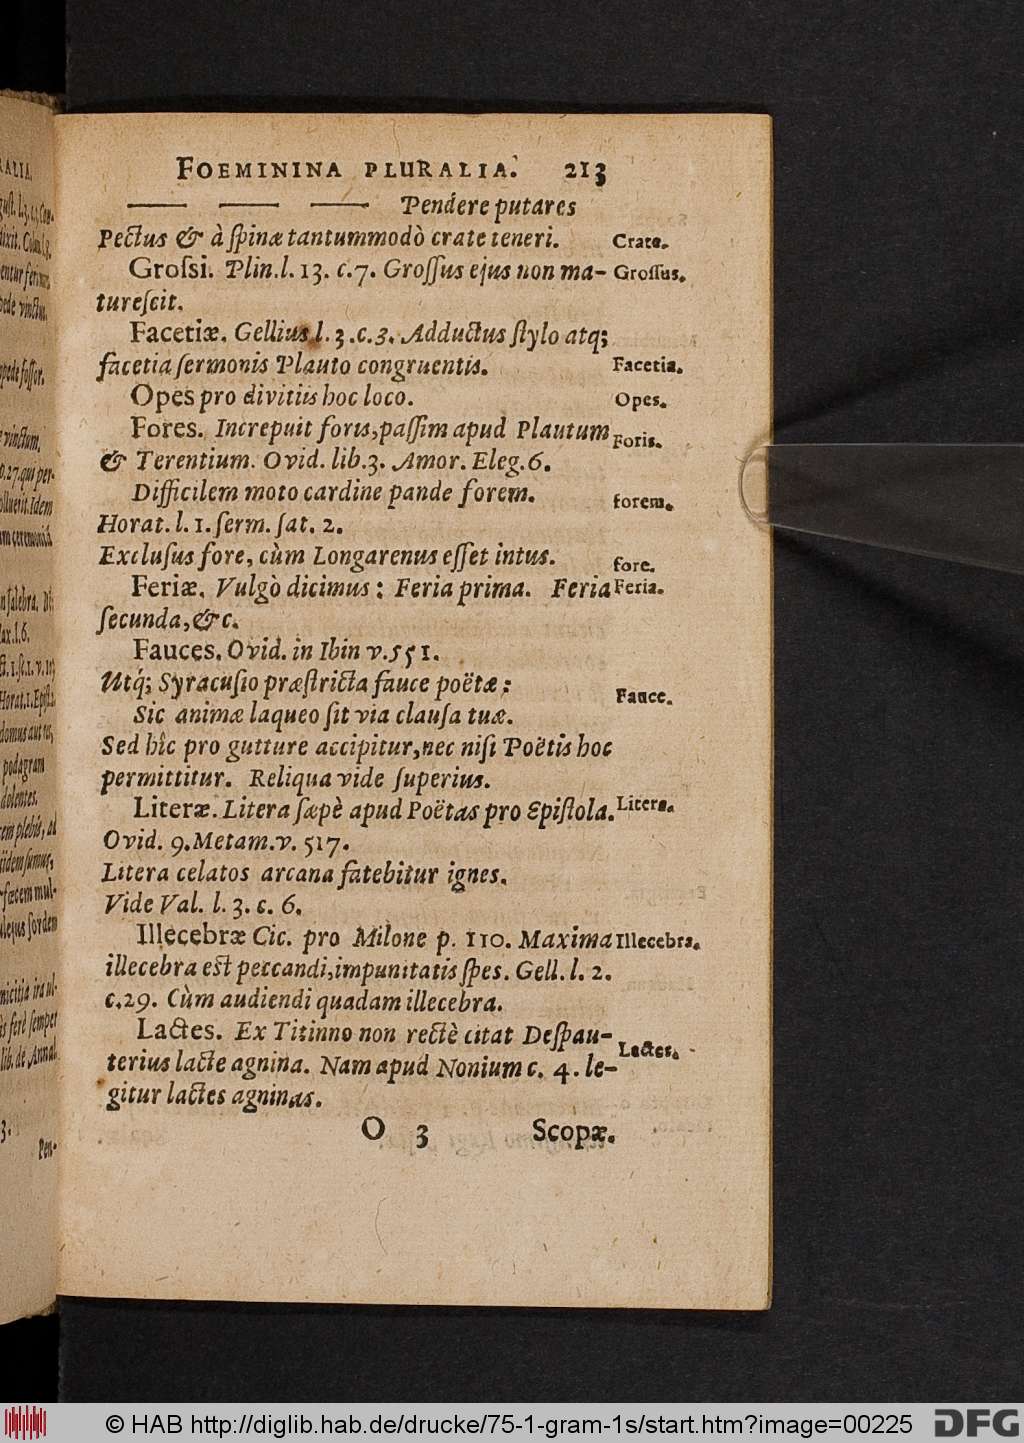 FOEMININA PLURALIA. 213
Pendere putares
Pectus & à ſpinæ tantummodò crate teneri. Crate.
Groſsi. Plin. l. 13. c. 7. Groſſus ejus non ma- Groſſus.
tureſcit.
Facetiæ. Gellius l. 3. c. 3. Adductus ſtylo atq;
facetia ſermonis Plauto congruentis. Facetia.
Opes pro divitiis hoc loco. Opes.
Fores. Increpuit foris, paſſim apud Plautum Foris.
& Terentium. Ovid. lib. 3. Amor. Eleg. 6.
Difficilem moto cardine pande forem. forem.
Horat. l. 1. ſerm. ſat. 2.
Excluſus fore, cùm Longarenus eſſet intus. fore.
Feriæ. Vulgò dicimus: Feria prima. Feria Feria.
ſecunda, &c.
Fauces. Ovid. in Ibin v. 551.
Utq́; Syracuſio præſtricta fauce poëtæ; Fauce.
Sic animæ laqueo ſit via clauſa tuæ.
Sed hîc pro gutture accipitur, nec niſi Poëtis hoc
permittitur. Reliqua vide ſuperius.
Literæ. Litera ſæpè apud Poëtas pro Epiſtola. Litera.
Ovid. 9. Metam. v. 517.
Litera celatos arcana fatebitur ignes.
Vide Val. l. 3. c. 6.
Illecebræ Cic. pro Milone p. 110. Maxima Illecebra.
illecebra eſt peccandi, impunitatis ſpes. Gell. l. 2.
c. 29. Cùm audiendi quadam illecebra.
Lactes. Ex Titinno non rectè citat Deſpau- Lactes.
terius lacte agnina. Nam apud Nonium c. 4. le-
gitur lactes agninas.
O 3 Scopæ.
© HAB http://diglib.hab.de/drucke/75-1-gram-1s/start.htm?image=00225
DFG